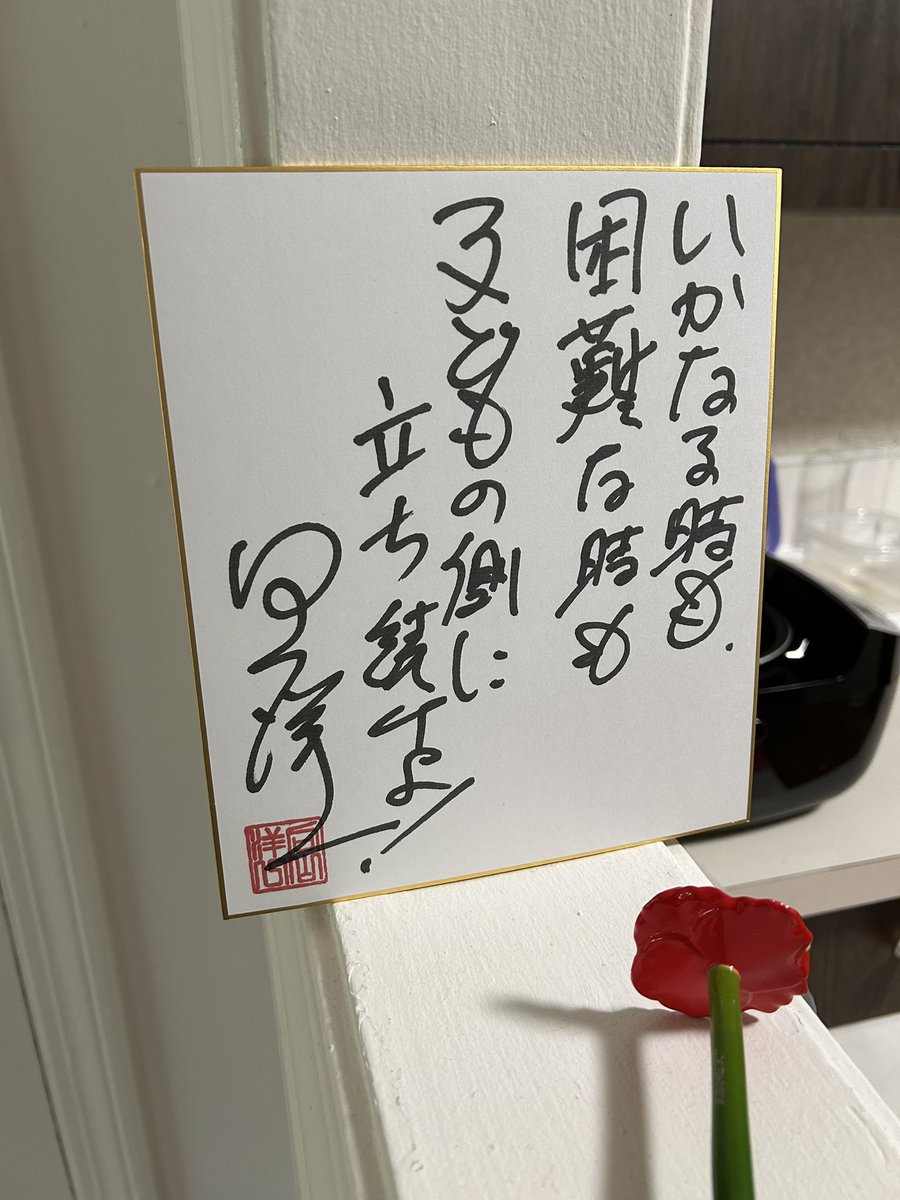 いかなる時も、
困難な時も
子どもの側に
立ち続けよ!
向山洋一